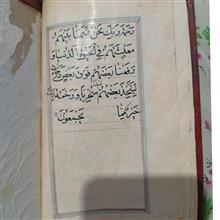 رحمة ربك نحن قسمنا بينهم
معيشتهم في الحيوة الدنيا و
رفعنا بعضهم فوق بعض درجات
ليتخذ بعضهم سخريا ورحمة ربك
خير مما يجمعون